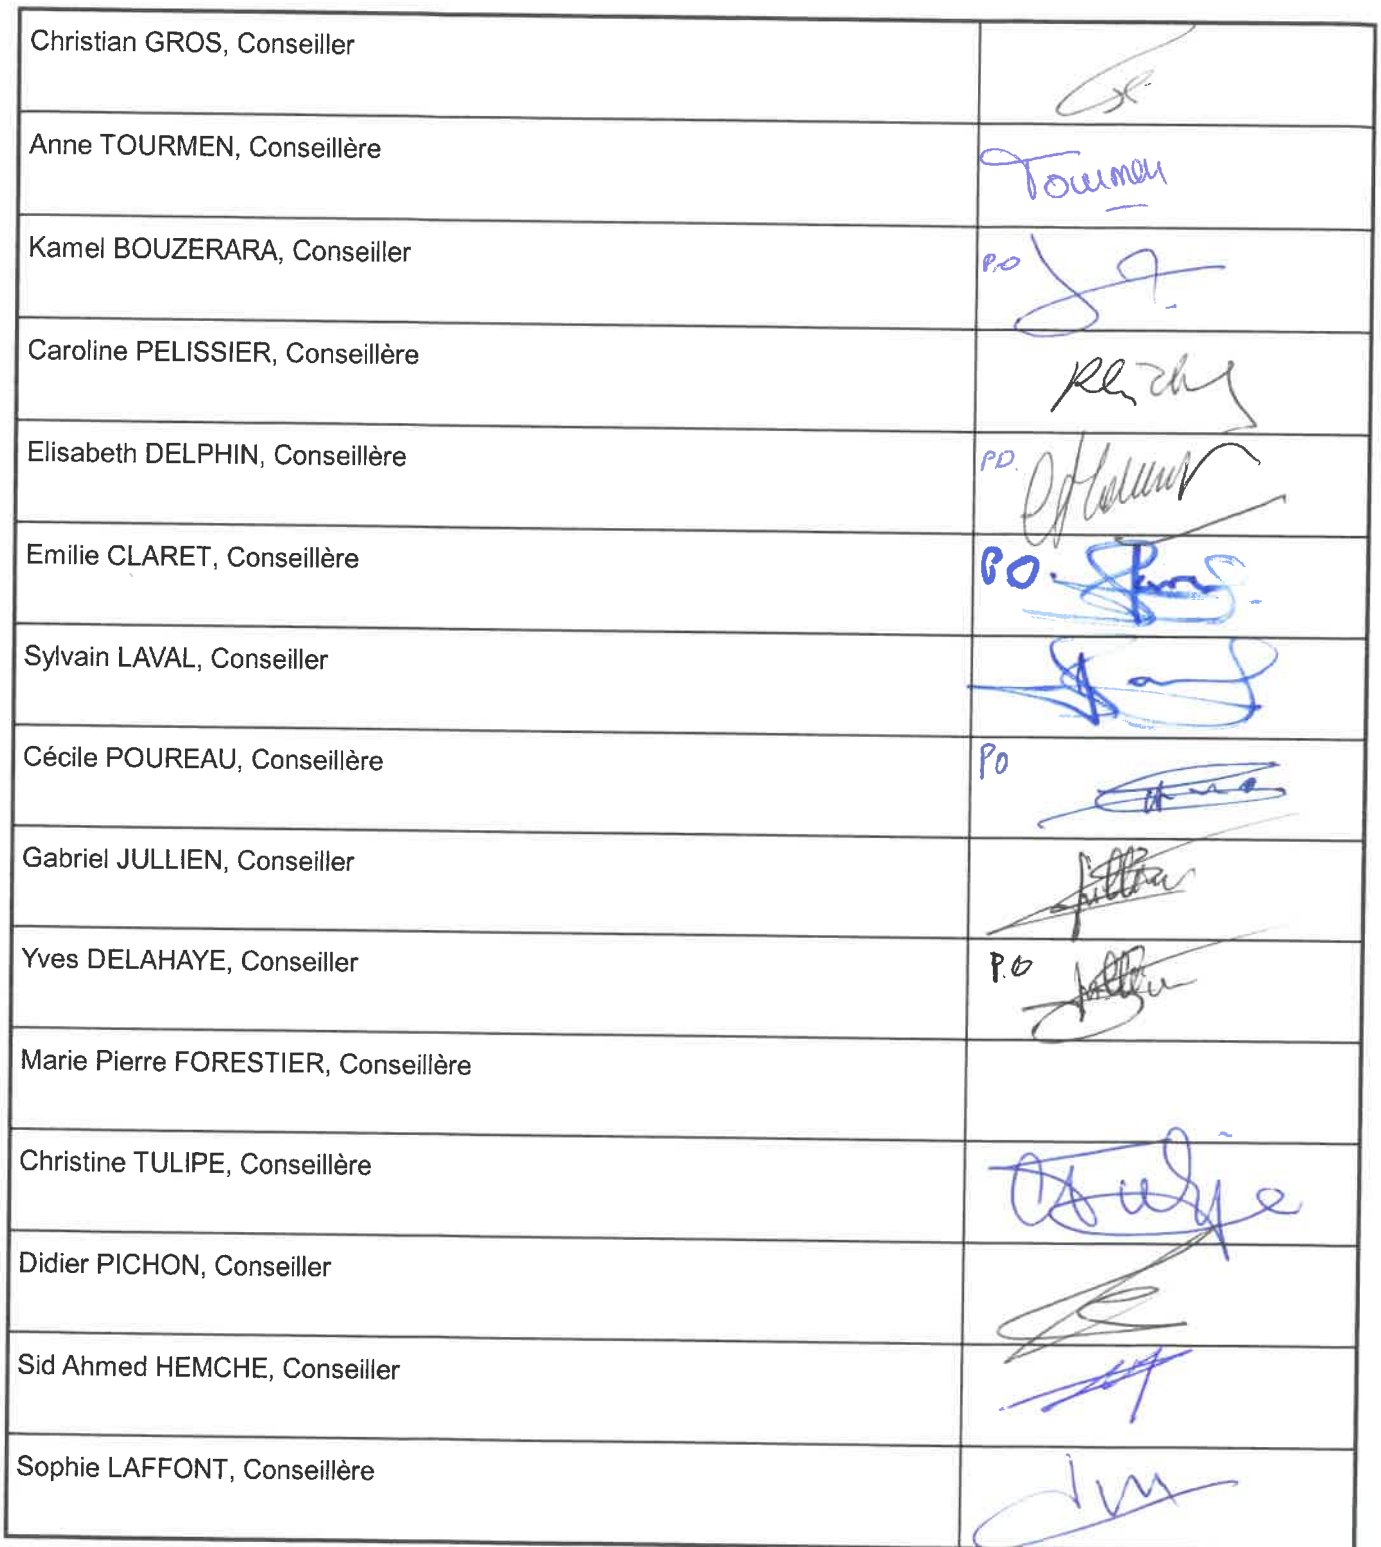 Christian GROS, Conseiller
Anne TOURMEN, Conseillère
Tourmen
Kamel BOUZERARA, Conseiller
P.O
Caroline PELISSIER, Conseillère
Elisabeth DELPHIN, Conseillère
PO.
Emilie CLARET, Conseillère
PO.
Sylvain LAVAL, Conseiller
Cécile POUREAU, Conseillère
PO
Gabriel JULLIEN, Conseiller
Yves DELAHAYE, Conseiller
P.O
Marie Pierre FORESTIER, Conseillère
Christine TULIPE, Conseillère
CTulipe
Didier PICHON, Conseiller
Sid Ahmed HEMCHE, Conseiller
Sophie LAFFONT, Conseillère